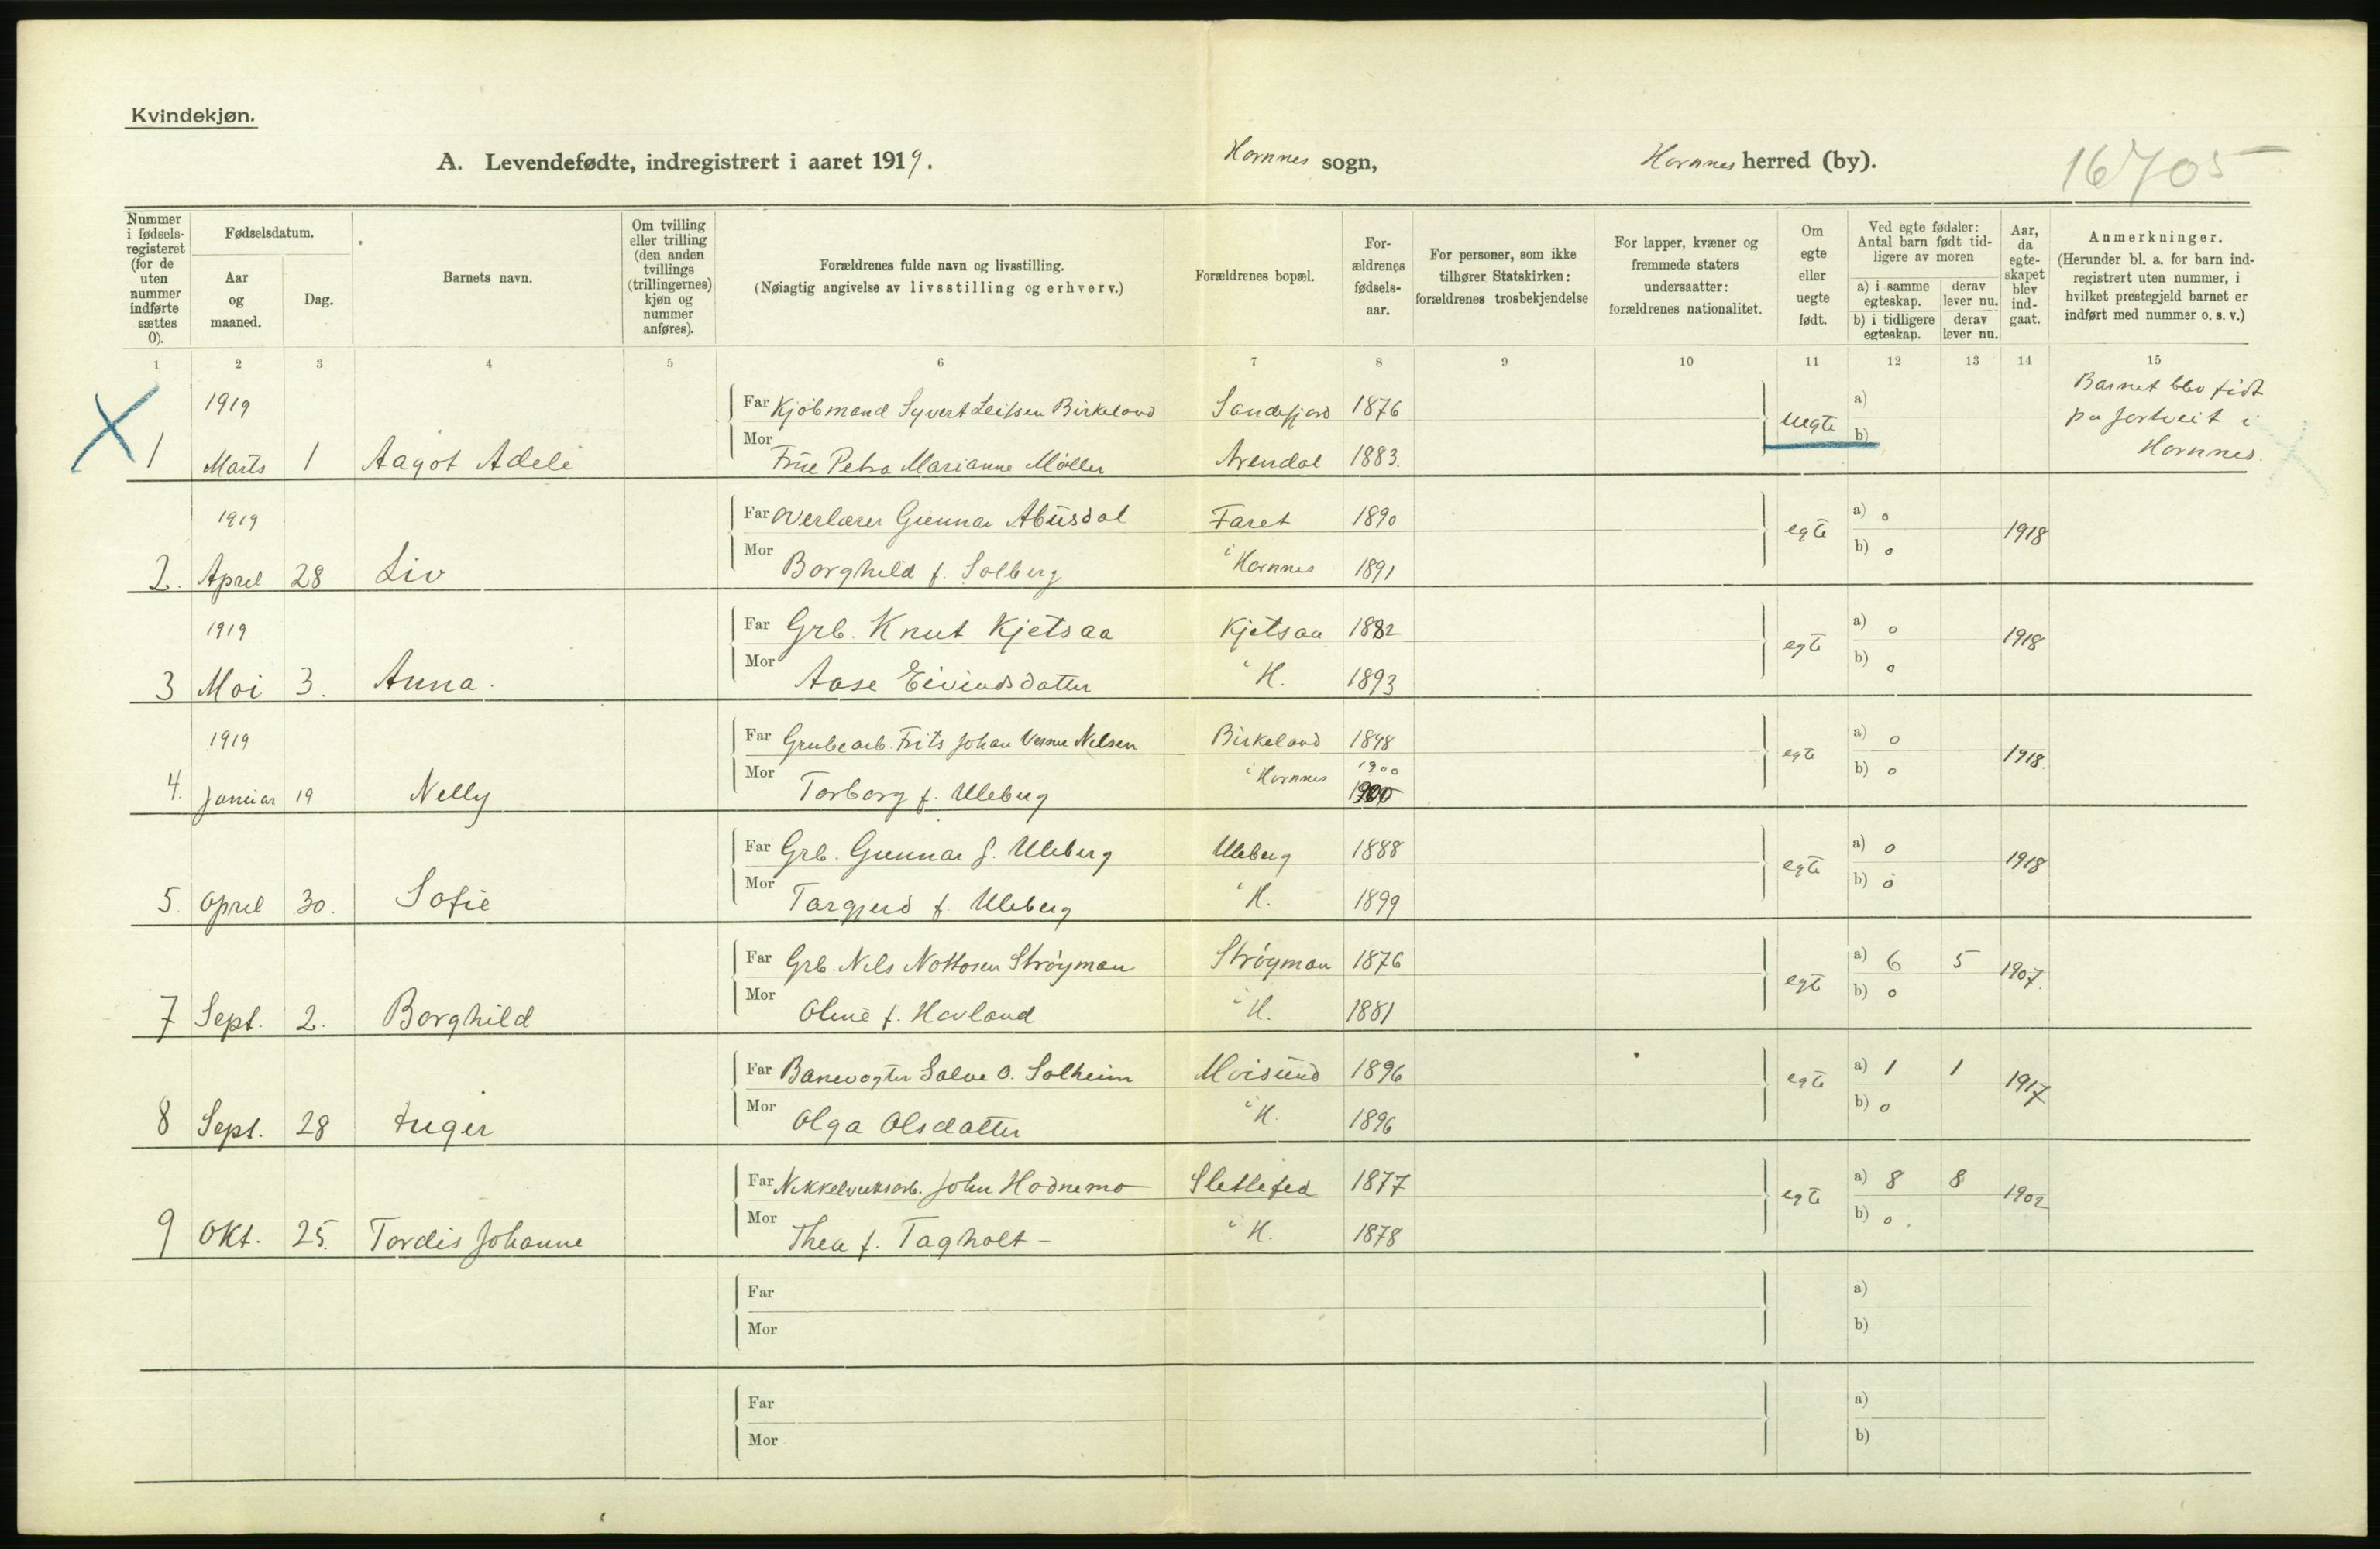 Kvindekjøn.
A. Levendefødte, indregistrert i aaret 1919. Hornnes sogn, Hornnes herred (by). 16705
Nummer i fødsels-registeret (for de uten nummer indførte sættes 0).
Fødselsdatum.
Aar og maaned.
Dag.
Barnets navn.
Om tvilling eller trilling (den anden tvillings (trillingernes) kjøn og nummer anføres).
Forældrenes fulde navn og livsstilling.
(Nøiagtig angivelse av livsstilling og erhverv.)
Forældrenes bopæl.
For-ældrenes fødsels-aar.
For personer, som ikke tilhører Statskirken: forældrenes trosbekjendelse
For lapper, kvæner og fremmede staters undersaatter: forældrenes nationalitet.
Om egte eller uegte født.
Ved egte fødsler: Antal barn født tid-ligere av moren
a) i samme egteskap. derav lever nu.
b) i tidligere egteskap. derav lever nu.
Aar, da egte-skapet blev ind-gaat.
Anmerkninger.
(Herunder bl. a. for barn ind-registrert uten nummer, i hvilket prestegjeld barnet er indført med nummer o. s. v.)
1 2 3 4 5 6 7 8 9 10 11 12 13 14 15
1919 Far Kjøbmand Syvert Leifsen Birkeland Sandefjord 1876 uegte a) Barnet blev født
på i
1 Marts 1 Aagot Adele Mor Frue Petra Marianne Møller Arendal 1883. b) Hornnes.
1919 Far Overlærer Gunnar Abusdal Faret 1890 egte a) 0 1918
2. April 28 Liv Mor Borghild f. Solberg i Hornnes 1891 b) 0
1919 Far Grb. Knut Kjetsaa Kjetsaa 1882 egte a) 0 1918
3 Mai 3. Anna. Mor Aase Eivindsdatter i H. 1893 b) 0
1919 Far Grubearb. Frits Johan Verner Nelsen Birkeland 1898 egte a) 0 1918.
4. Januar 19 Nelly Mor Torborg f. Uleberg i Hornnes 1900 1900 b) 0
Far Grb. Gunnar G. Uleberg Uleberg 1888 egte a) 0 1918
5. April 30. Sofie Mor Targjerd f. Uleberg i H. 1899 b) 0
Far Grb. Nils Nottosen Strøyman Strøyman 1876 egte a) 6 5 1907.
7 Sept. 2. Borghild Mor Oline f. Havland i H. 1881 b) 0
Far Banevogter Salve O. Solheim Moisund 1896 egte a) 1 1 1917
8 Sept. 28 Inger Mor Olga Olsdatter i H. 1896 b) 0
Far Nikkelverksarb. John Hodnemo Slettefed 1877 egte a) 8 8 1902
9 Okt. 25. Tordis Johanne Mor Thea f. Tagholt - i H. 1878 b) 0.
Far a)
Mor b)
Far a)
Mor b)